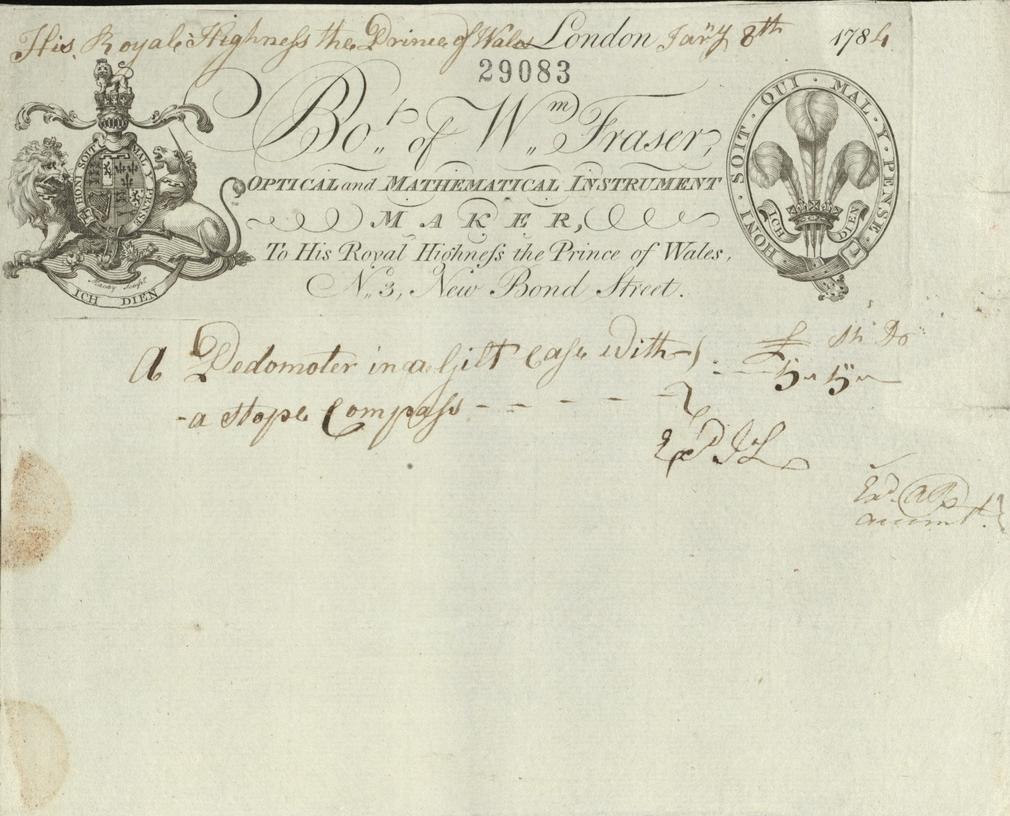 His Royal Highness the Prince of Wales London Jan'y 8th 1784
29083
Bot. of Wm. Fraser,
OPTICAL and MATHEMATICAL INSTRUMENT
MAKER,
To His Royal Highneſs the Prince of Wales,
No. 3, New Bond Street.
HONI SOIT QUI MAL Y PENSE
ICH DIEN
HONI · SOIT · QUI · MAL · Y · PENSE
ICH DIEN
£ Sh Do
A Pedomoter in a Gilt Case with 5 " 5 "
a Stope Compass
Exd.